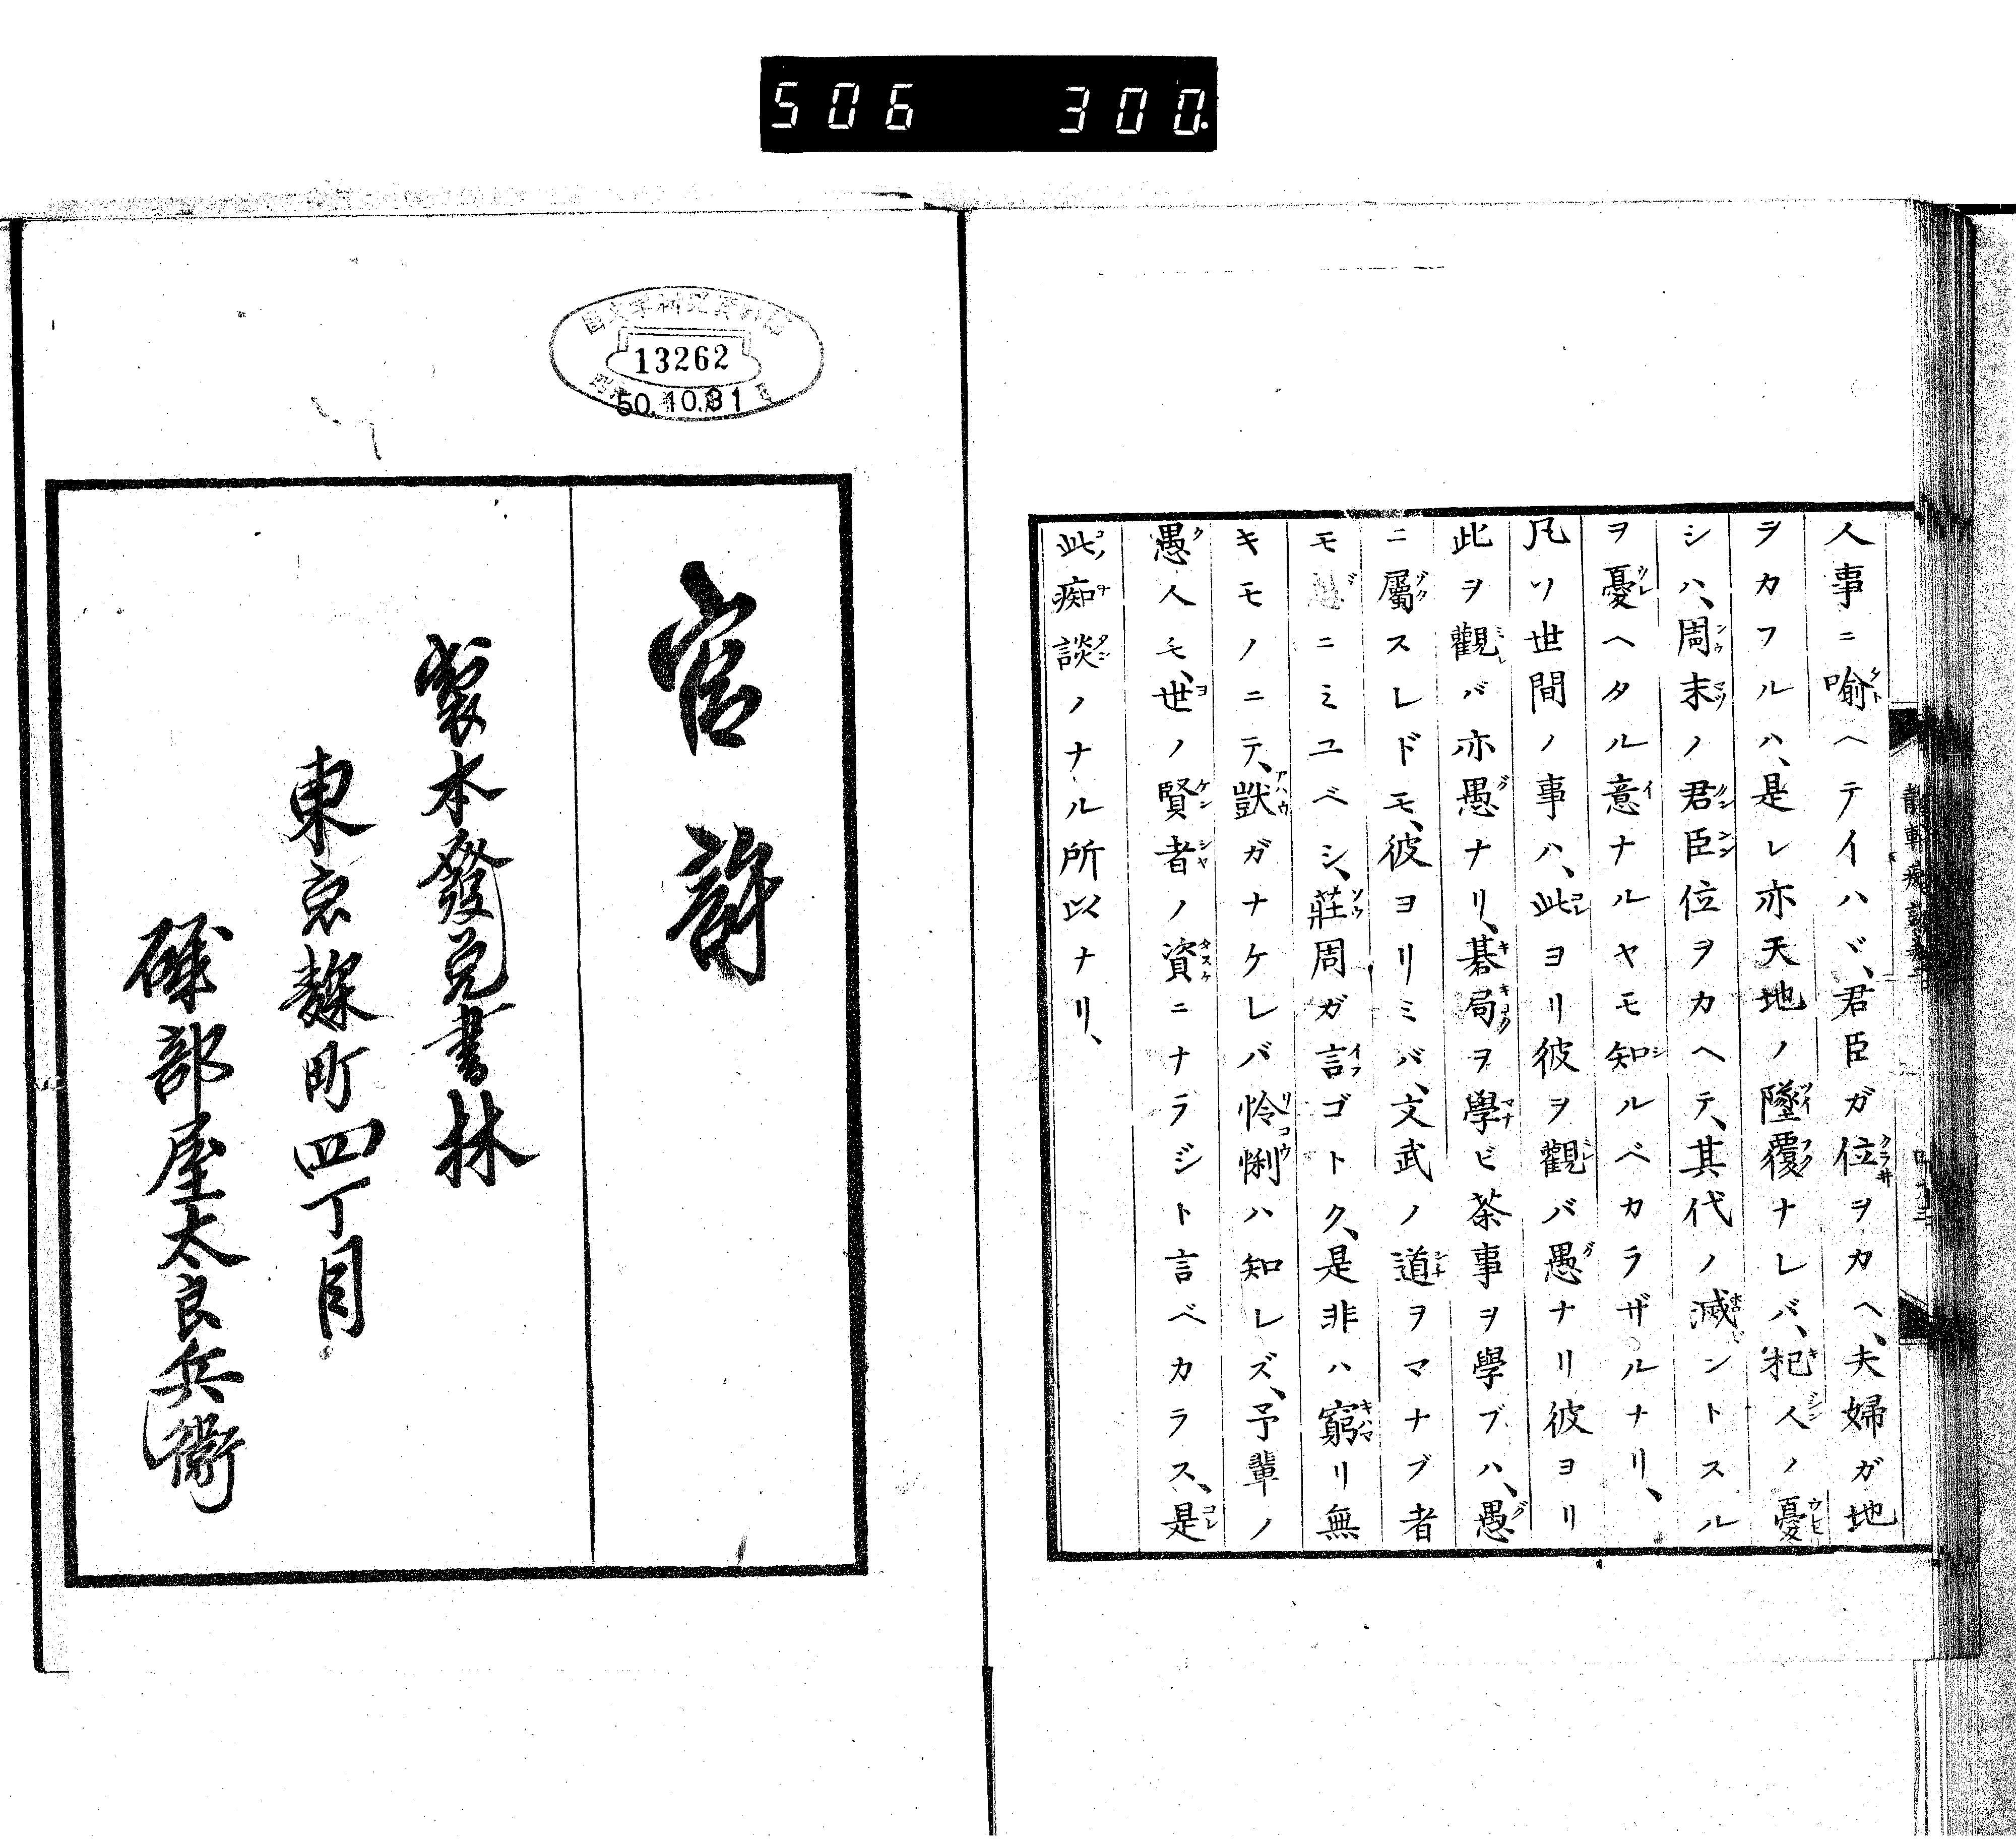 506 300.
人事ニ喩ヘテイハヾ、君臣ガ位ヲカヘ、夫婦ガ地
ヲカフルハ、是レ亦天地ノ墜覆ナレバ、杞人ノ憂
シハ、周末ノ君臣位ヲカヘテ、其代ノ滅ントスル
ヲ憂ヘタル意ナルヤモ知ルベカラザルナリ、
凡ソ世間ノ事ハ、此ヨリ彼ヲ觀バ愚ナリ彼ヨリ
此ヲ觀バ亦愚ナリ、碁局ヲ學ビ茶事ヲ學ブハ、愚
ニ屬スレドモ、彼ヨリミバ、文武ノ道ヲマナブ者
モ ニミユベシ、莊周ガ言ゴトク、是非ハ窮リ無
キモノニテ、獃ガナケレバ怜悧ハ知レズ、予輩ノ
愚人モ、世ノ賢者ノ資ニナラジト言ベカラス、是
此痴談ノナル所以ナリ、
13262
50.10.31
官許
製本發兌書林
東京麹町四丁目
礒部屋太良兵衛